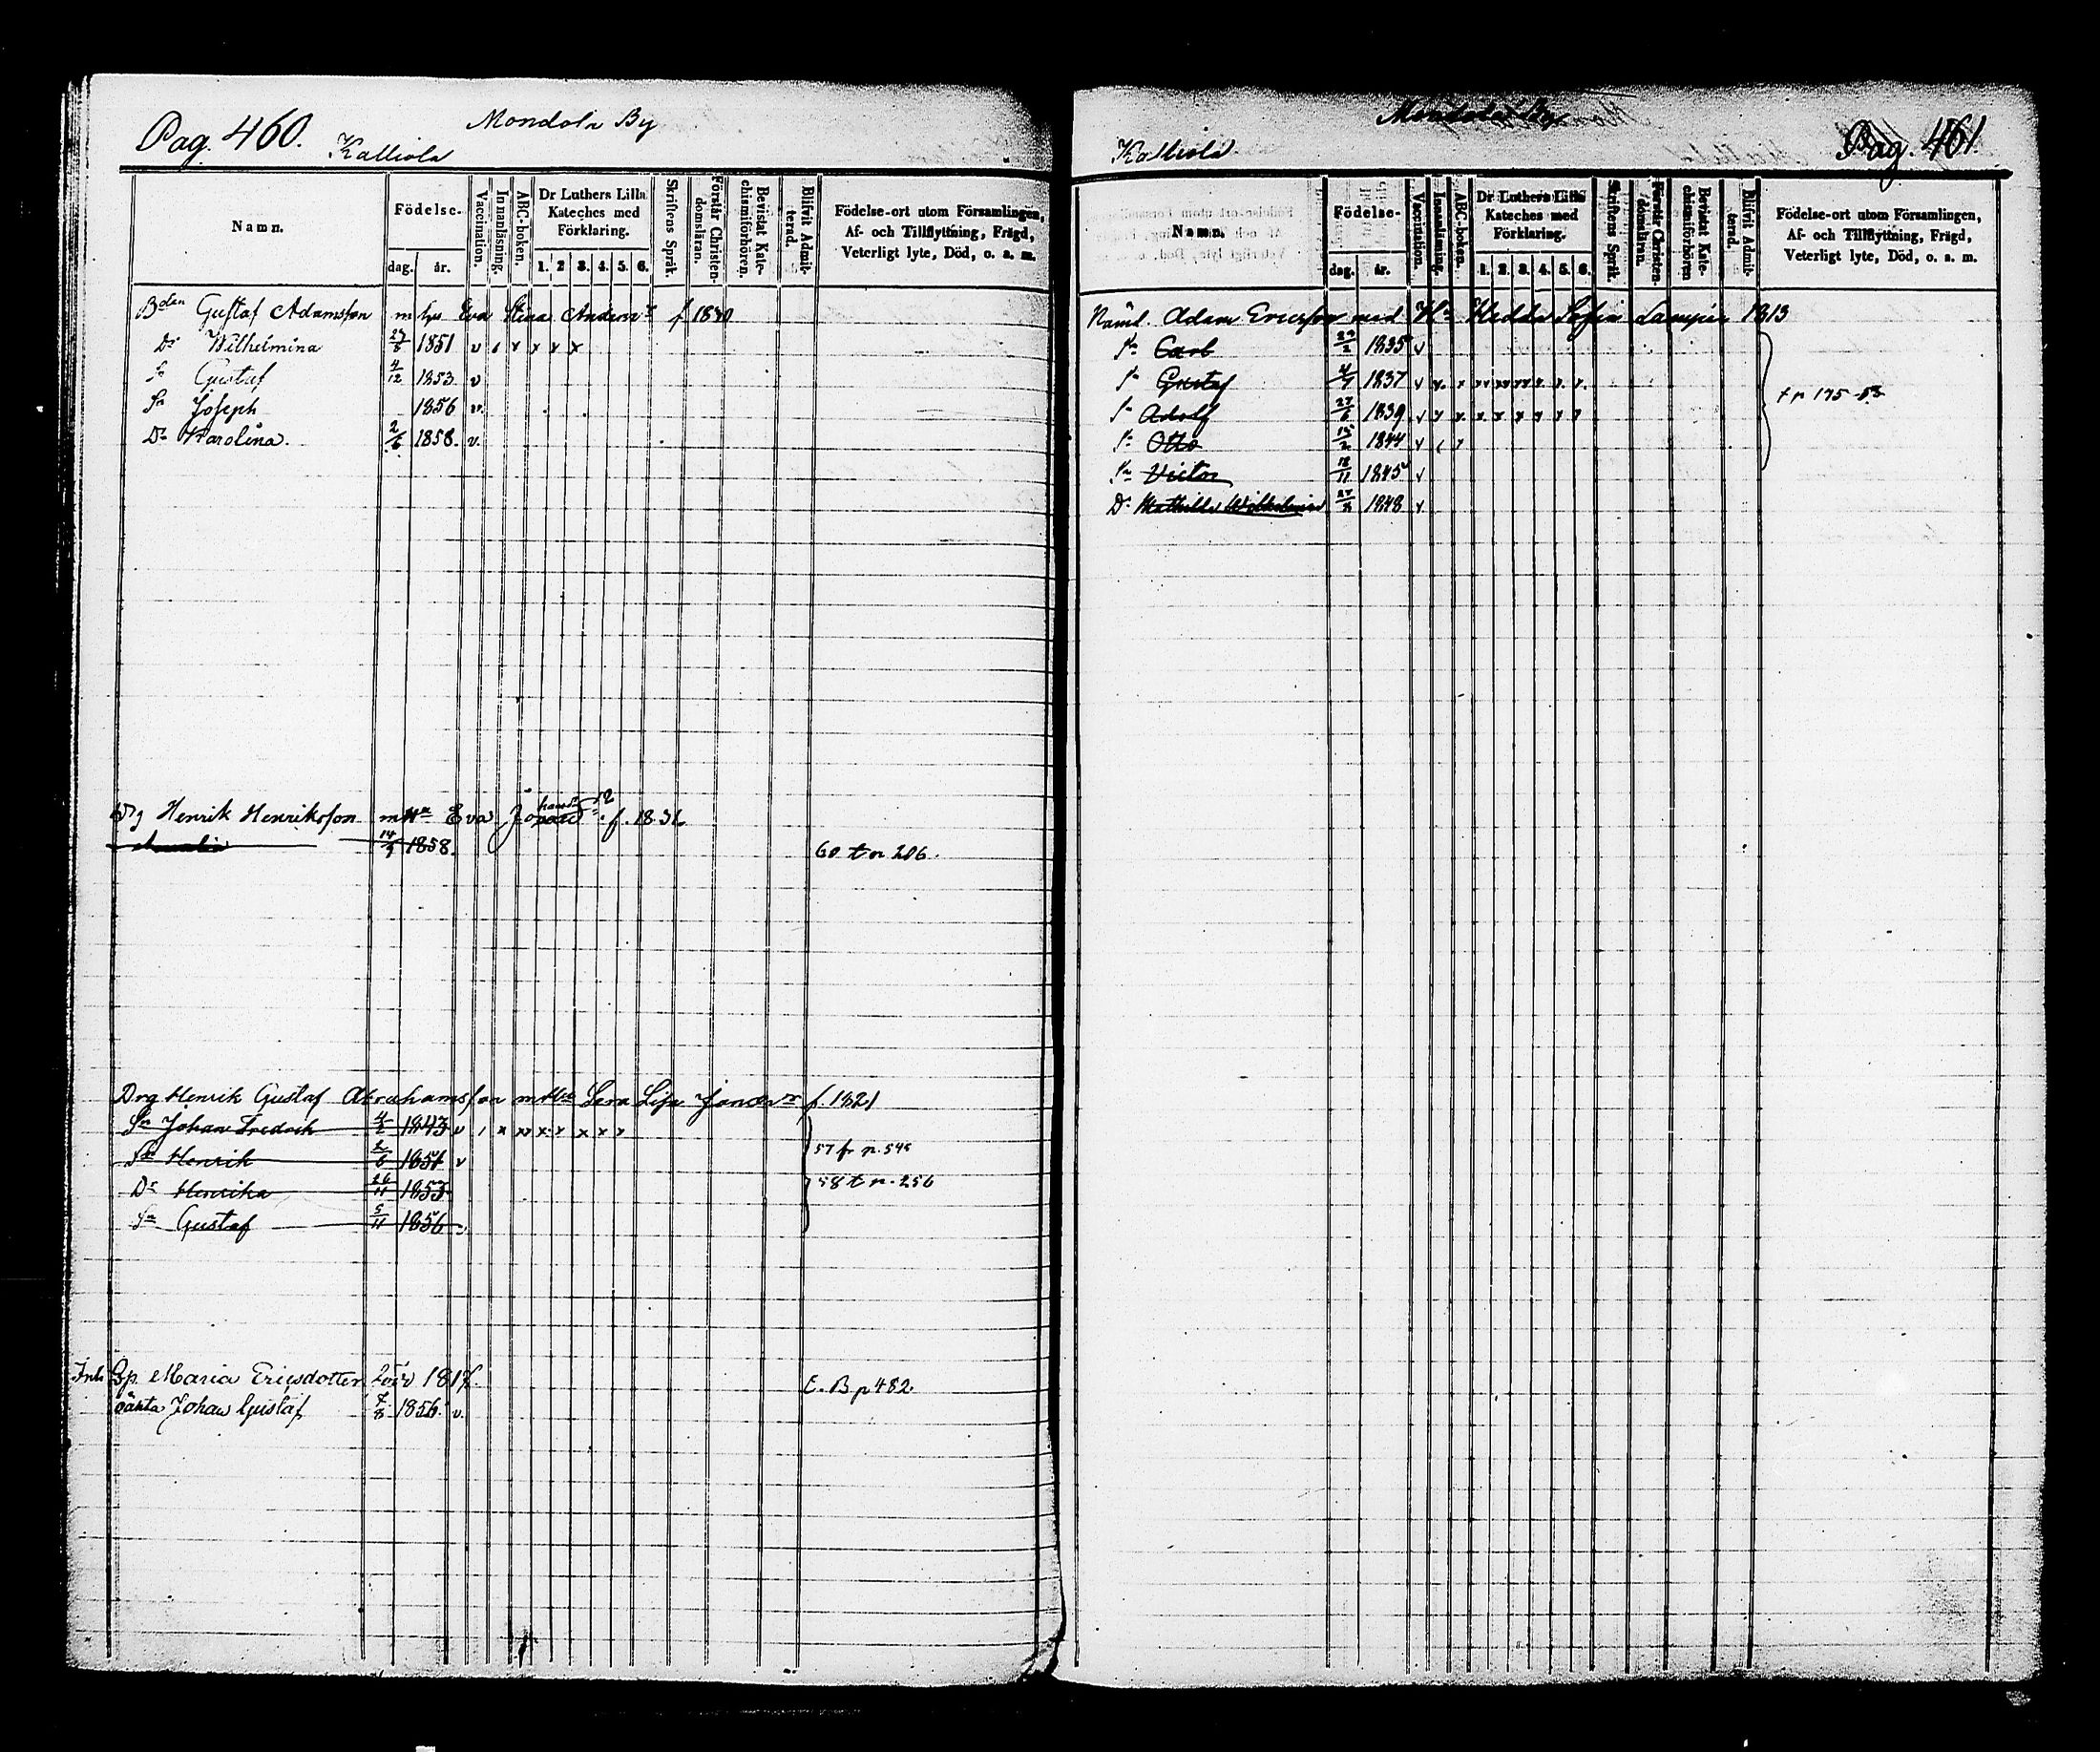 Pag. 460.
Mondola By
Kalliola
Namn.
Födelse-
dag.
år.
Vaccination.
Innanläsning.
ABC-boken.
Dr Luthers Lilla
Kateches med
Förklaring.
1. 2 3. 4. 5. 6.
Skriftens Språk.
Förstår Christen-
domsläran.
Bevistat Kate-
chismiförhören.
Blifvit Admit-
terad.
Födelse-ort utom Församlingen,
Af- och Tillflyttning, Frägd,
Veterligt lyte, Död, o. a. m.
Bden Gustaf Adamsson m hu Eva Stina Anders f 1830
Dr Wilhelmina 1851 v
Sn Gustaf 4/12 1853 v
Sn Joseph 1856 v.
Dr Karolina. 2/6 1858. v.
Henrik Henriksson m Hu Eva f. 1831
14/9 1858. 60 t n 206.
Drg Henrik Gustaf Abrahamsson m Hu Sara Lisa f. 1821
Sn Johan Fredrik 1843 v
Sn Henrik 2/6 1851 v 57 fr p. 545
Dr Henrika 26/11 1853 58 t p. 256
Sn Gustaf 5/11 1856
Inh Maria Ericsdotter 1817. E. B p 482
oäkta Johan Gustaf 7/8 1856. v.
Mondola By
Pag. 461.
Kalliola
Namn.
Födelse-
dag.
år.
Vaccination.
Innanläsning.
ABC-boken.
Dr Luthers Lilla
Kateches med
Förklaring.
1. 2. 3. 4. 5. 6.
Skriftens Språk.
Förstår Christen-
domsläran.
Bevistat Kate-
chismiförhören
Blifvit Admit-
terad.
Födelse-ort utom Församlingen,
Af- och Tillflyttning, Frägd,
Veterligt lyte, Död, o. a. m.
Nämd. Adam Ericsson med Hu Hedda Sofia 1813
Sn Carl 1835 v
Sn Gustaf 1837 v
Sn Adolf 27/6 1839 v
Sn Otto 15/2 1844 v
Sn Victor 18/11 1845 v
Dr Mathilda Wilhelmina 1848 v
t p 175